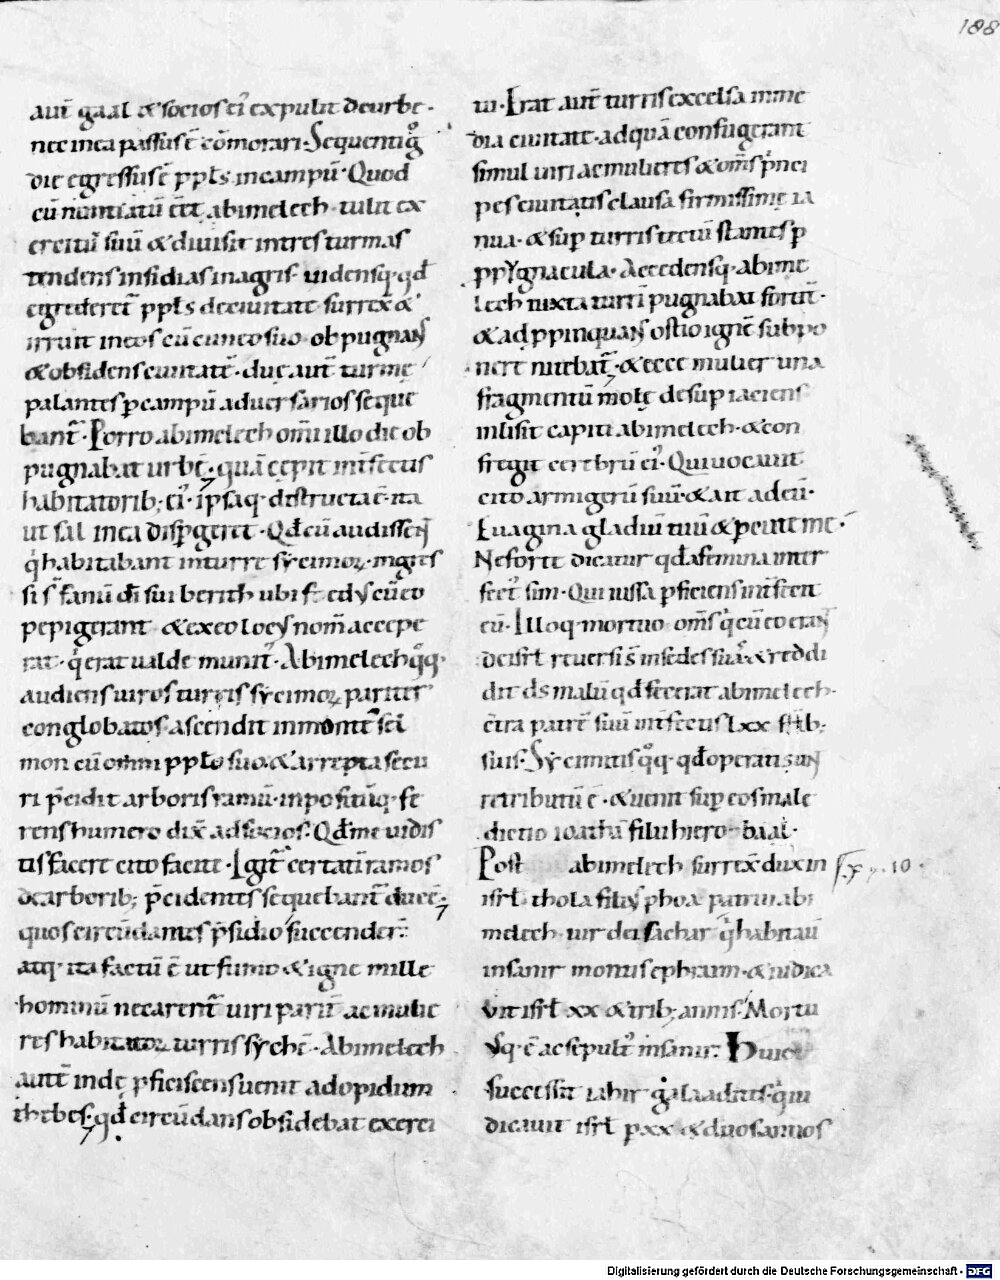 188
aut̄ gaal & socios ei᾽ expulit de urbe ·
nec in ea passus ē cōmorari · Sequenti g̊
die egressus ē ppl̄s in campū · Quod
cū nuntiatū eēt abimelech · tulit ex
ercitū suū & diuisit in tres turmas
tendens insidias in agris · uidensq · qđ
egrederet̄ ppl̄s de ciuitate · surrex̄ &
irruit in eos cū cuneo suo · obpugnans
& obsidens ciuitatē · duę aut̄ turmę
palantes p campū aduersarios seque
bant̄ · Porro abimelech om̄i illo die ob
pugnabat urbē · quā cepit int̄fectis
habitatorib; ei᾽ · ipsaq · destructa ē · ita
ut sal in ea dispgeret · Qđ cū audissent
q̇ habitabant in turre sycimoꝝ · ingres
si s̄ fanū dī sui berith · ubi fędus cū eo
pepigerant · & ex eo locus nom̄ accepe
rat · q̇ erat ualde munit᾽ · Abimelech q̊q ·
audiens uiros turris sycimoꝝ pariter
conglobatos · ascendit in montē sel
mon cū omni pplo suo · & arrepta secu
ri p̄cidit arboris ramū · inpositūq · fe
rens humero dix̄ ad socios · Qđ me uidis
tis facere cito facite · Igit̄ certatī ramos
de arborib; p̄cidentes sequebant̄ ducē ·
quos circūdantes p̄sidio succender̄ ·
atq · ita factū ē ut fumo & igne mille
hominū necarent̄ uiri pariť ac mulie
res habitatoꝝ turris sychē · Abimelech
aut̄ indę pficiscens uenit ad opidum
thebes · qđ circūdans obsidebat exerci
tu · Erat aut̄ turris excelsa in me
dia ciuitate · ad quā confugerant
simul uiri ac mulieres & om̄s p̄nci
pes ciuitatis clausa firmissimę ia
nua · & sup turris tectū stantes p
ppugnacula · Accedensq · abime
lech iuxta turrī pugnabat fortit̄ ·
& adppinquans ostio ignē subpo
nere nitebat̄ · & ecce mulier una
fragmentū molę desup iaciens
inlisit capiti abimelech · & con
fregit cerebrū ei᾽ · Qui uocauit
cito armigerū suū · & ait ad eū ·
Euagina gladiū tuū & pcute me ·
Ne forte dicatur qđ a femina inter
fect᾽ sim · Qui iussa pficiens int̄fecit
eū · Illoq · mortuo om̄s q̇ cū eo erant
de isrl̄ reuersi s̄ in sedes suas · & reddi
dit ds malū qđ fecerat abimelech ·
ct̄ra patrē suū int̄fectis lxx fr̄ib;
suis · Sycimitis q̊q · qđ operati sunt
retributū ē · & uenit sup eos male
dictio ioathā filii hiero baal ·
Post abimelech surrex̄ dux in
isrl̄ thola filius phoa patrui abi
melech · uir de isachar q̇ habitauit
in sanir montis ephraim · & iudica
uit isrl̄ xx & trib; annis · Mortu
usq · ē ac sepult᾽ in sanir · Huic
successit iahir galaadites · qui
dicauit isrl̄ p xx & duos annos
Digitalisierung gefördert durch die Deutsche Forschungsgemeinschaft - DFG